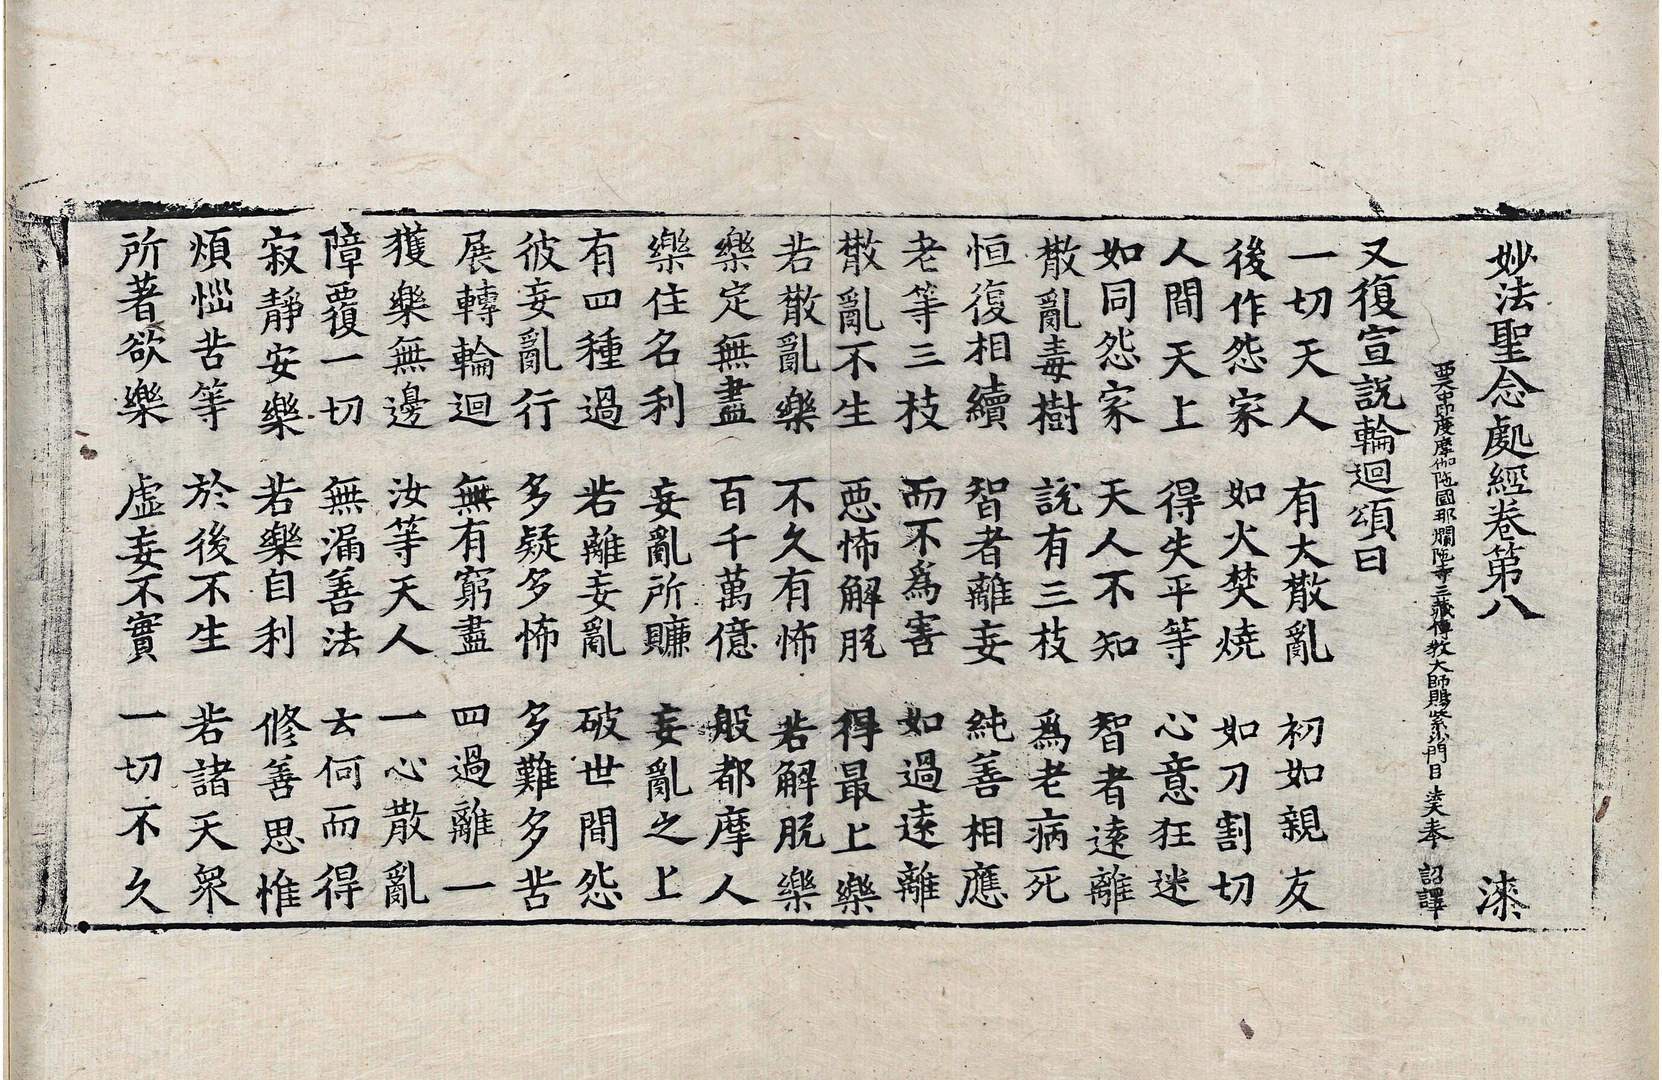 妙法聖念處經卷第八 漆
西天中印度摩伽陁國那爛陁寺三藏傳教大師賜紫沙門臣法天奉 詔譯
又復宣說輪迴頌曰
一切天人 有大散亂 初如親友
後作怨家 如火焚燒 如刀割切
人間天上 得失平等 心意狂迷
如同怨家 天人不知 智者遠離
散亂毒樹 說有三枝 為老病死
恒復相續 智者離妄 純善相應
老等三枝 而不為害 如過遠離
散亂不生 惡怖解脫 得最上樂
若散亂樂 不久有怖 若解脫樂
樂定無盡 百千萬億 般都摩人
樂住名利 妄亂所賺 妄亂之上
有四種過 若離妄亂 破世間怨
彼妄亂行 多疑多怖 多難多苦
展轉輪迴 無有窮盡 四過離一
獲樂無邊 汝等天人 一心散亂
障覆一切 無漏善法 云何而得
寂靜安樂 若樂自利 修善思惟
煩惱苦等 於後不生 若諸天眾
所著欲樂 虛妄不實 一切不久